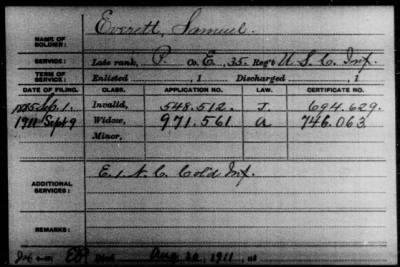 NAME OF SOLDIER: Everett, Samuel.
SERVICE: Late rank, P. Co. E, 35. Reg't U. S. C. Inf.
TERM OF SERVICE: Enlisted , 1 Discharged , 1
DATE OF FILING. CLASS. APPLICATION NO. LAW. CERTIFICATE NO.
Sep. 1. Invalid, 548.512. J. 694.629.
1911 Sept 9 Widow, 971.561 a 746.063
Minor,
ADDITIONAL SERVICES: E. 1 N. C. Cold Inf.
REMARKS:
Died Aug 20, 1911, at